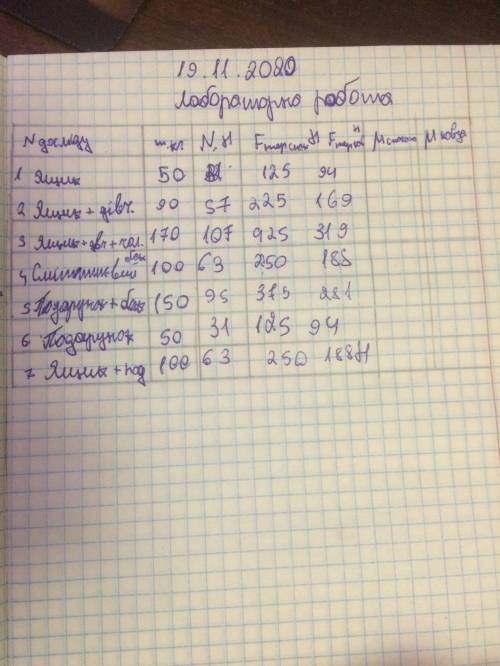 19.11.2020
Лабораторна робота
N досліду m, кг N, H Fтерспок H Fтерков H μспокою μ ковза
1 Ящик 50 125 94
2 Ящик + дівч. 90 57 225 169
3 Ящик + дівч + хл. 170 107 925 319
4 Смітниковий бак 100 63 250 188
5 Подарунок + бак 150 95 375 281
6 Подарунок 50 31 125 94
7 Ящик + под 100 63 250 188H